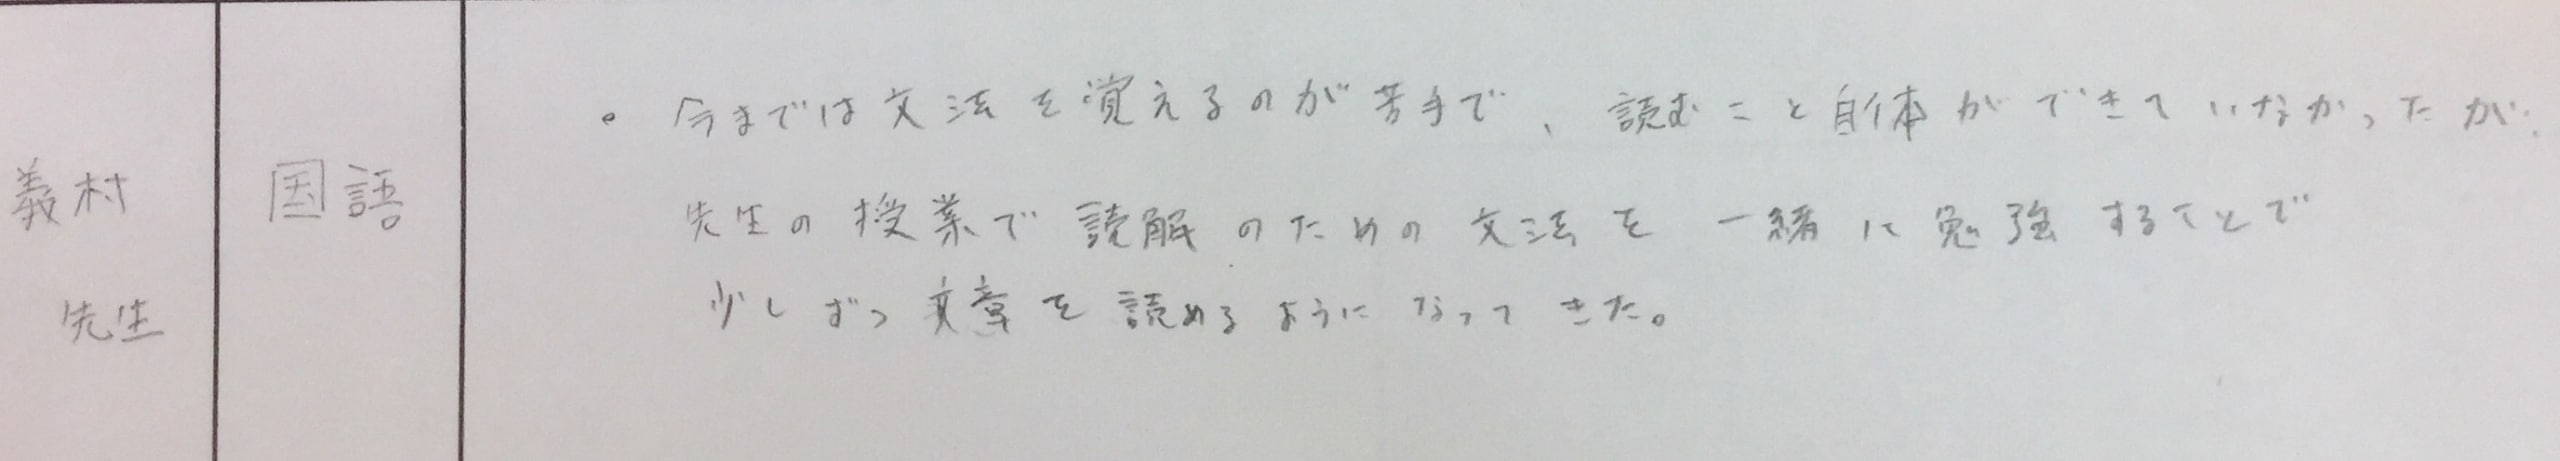 義村
先生
国語
・今までは文法を覚えるのが苦手で、読むこと自体ができていなかったが、
先生の授業で読解のための文法を一緒に勉強することで
少しずつ文章を読めるようになってきた。